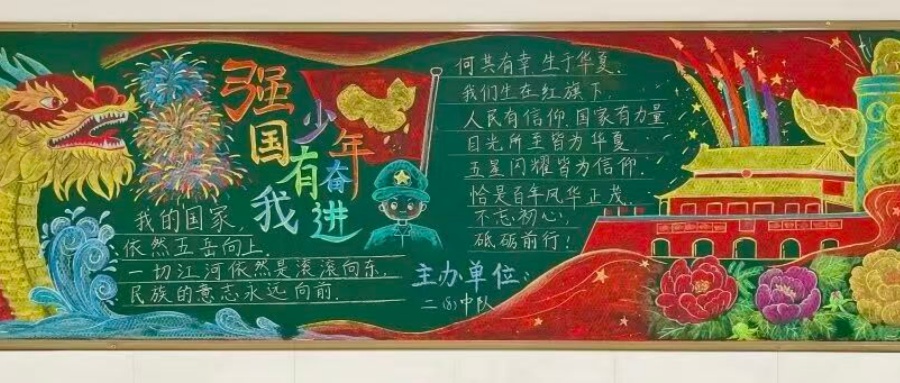 强国有我
少年奋进
我的国家,
依然五岳向上.
一切江河依然是滚滚向东,
民族的意志永远向前.
何其有幸,生于华夏.
我们生在红旗下
人民有信仰,国家有力量
目光所至皆为华夏,
五星闪耀皆为信仰.
恰是百年风华正茂.
不忘初心,
砥砺前行!
主办单位:
二(8)中队